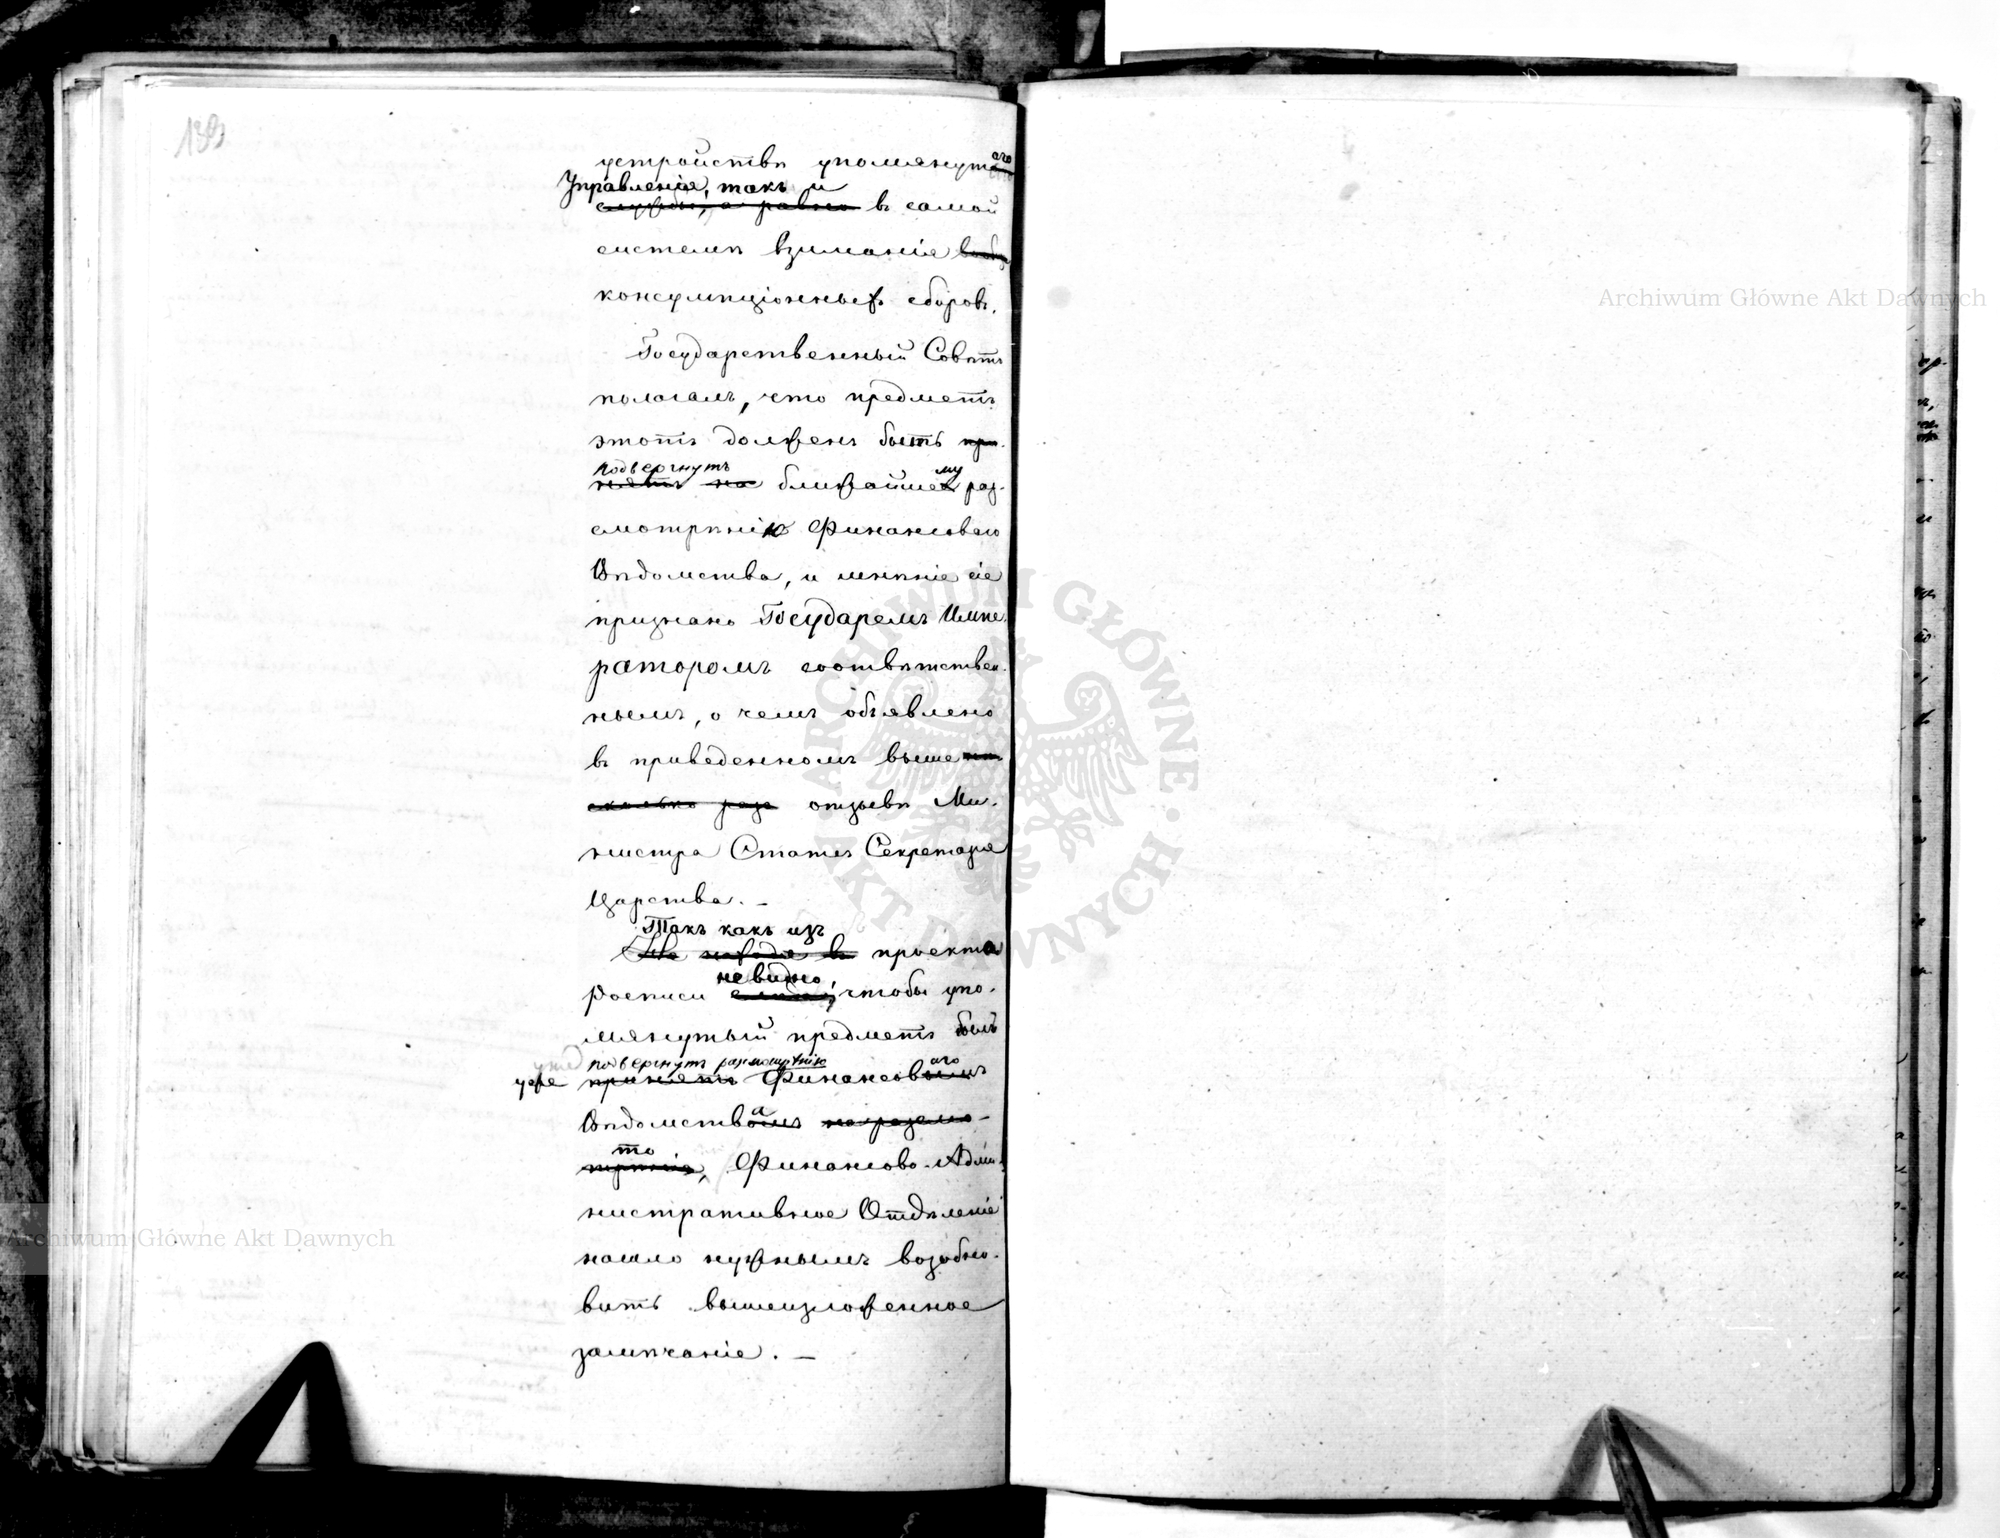 139
устройствѣ упомянутаго
Управленія, такъ и
службы, а равно въ самой
системѣ взиманія
консумпціонныхъ сборовъ.
Государственный Совѣтъ
полагалъ, что предметъ
этотъ долженъ быть при-
подвергнутъ
нятъ на ближайшему раз-
смотрѣнію Финансоваго
Вѣдомства, и мнѣніе сіе
признано Государемъ Импе-
раторомъ соотвѣтствен-
нымъ, о чемъ объявлено
въ приведенномъ выше нѣ-
сколько разъ отзывѣ Ми-
нистра Статсъ Секретаря
Царства. —
Такъ какъ изъ
Не находя въ проекта
не видно,
Росписи чтобы упо-
мянутый предметъ былъ
подвергнутъ разсмотрѣнію
уже принятъ Финансоваго
Вѣдомства на разсмо-
то
трѣніе, Финансово-Адми-
нистративное Отдѣленіе
нашло нужнымъ возобно-
вить вышеизложенное
замѣчаніе. —
Archiwum Główne Akt Dawnych
Archiwum Główne Akt Dawnych
ARCHIWUM GŁÓWNE AKT DAWNYCH